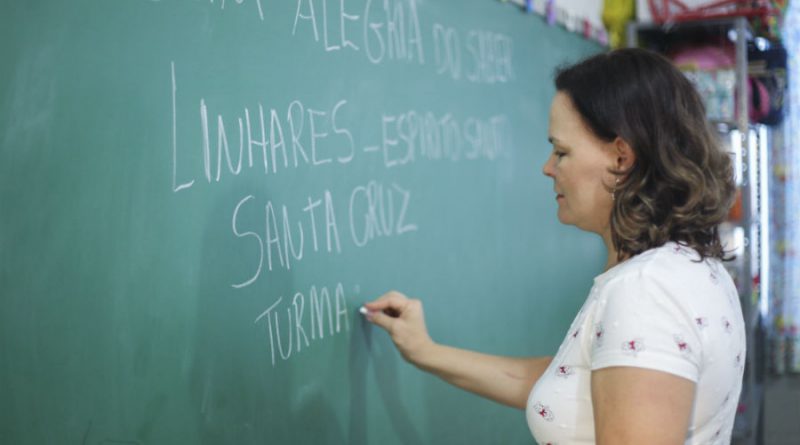 ALEGRIA DO SABER
LINHARES - ESPIRITO SANT
SANTA CRUZ
TURMA